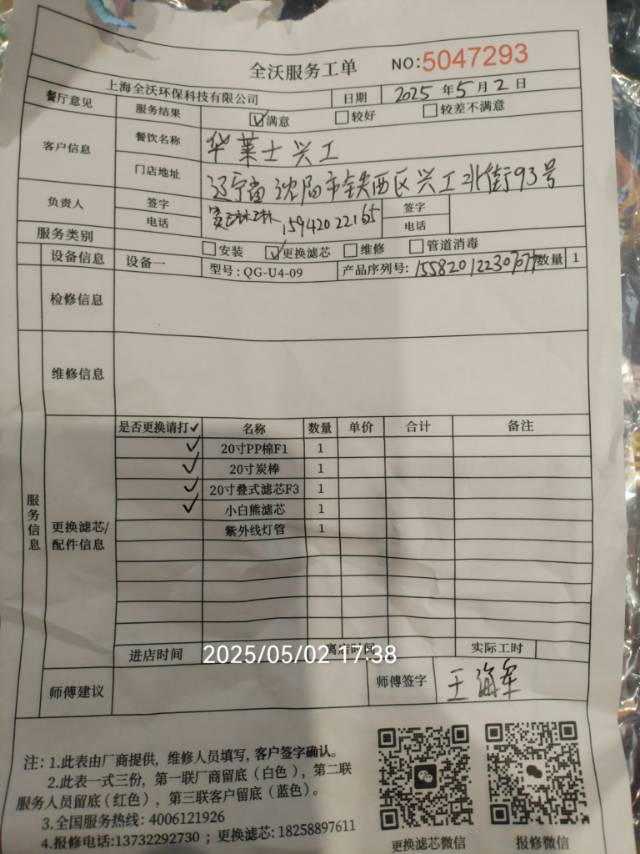 全沃服务工单 NO:5047293
上海全沃环保科技有限公司 日期 2025年5月2日
餐厅意见 服务结果 ☑满意 □较好 □较差不满意
客户信息 餐饮名称 华莱士兴工
门店地址 辽宁省沈阳市铁西区兴工北街93号
负责人 签字 签字
电话 15942022165 电话
服务类别 □安装 ☑更换滤芯 □维修 □管道消毒
设备信息 设备一 型号:QG-U4-09 产品序列号: 数量 1
检修信息
维修信息
服务信息
更换滤芯/配件信息
是否更换请打✓ 名称 数量 单价 合计 备注
✓ 20寸PP棉F1 1
✓ 20寸炭棒 1
✓ 20寸叠式滤芯F3 1
✓ 小白熊滤芯 1
紫外线灯管 1
进店时间 离店时间 实际工时
2025/05/02 17:38
师傅建议 师傅签字 王海军
注:1.此表由厂商提供,维修人员填写,客户签字确认。
2.此表一式三份,第一联厂商留底(白色),第二联
服务人员留底(红色),第三联客户留底(蓝色)。
3.全国服务热线:4006121926
4.报修电话:13732292730;更换滤芯:18258897611
更换滤芯微信 报修微信